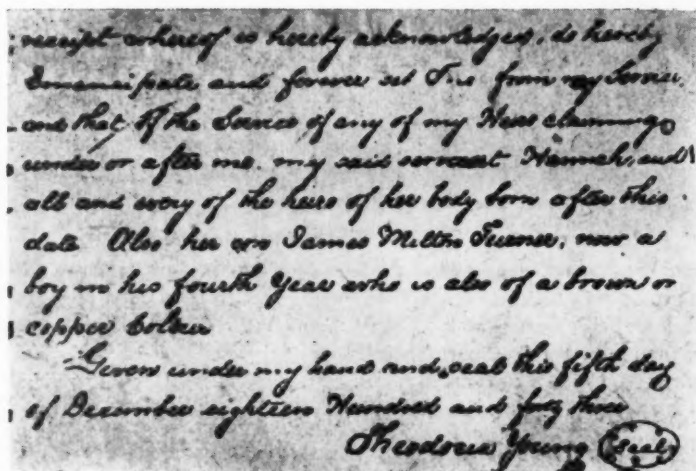 receipt whereof is hereby acknowledged, do hereby
Emancipate and forever set Free from my Service
and that of the Service of any of my Heirs claiming
under or after me. my said servant Hannah, and
all and every of the heirs of her body born after this
date Also her son James Milton Turner, now a
boy in his fourth Year who is also of a brown or
copper Colour
Given under my hand and seal this fifth day
of December eighteen Hundred and forty three
Theodosia Young (Seal)